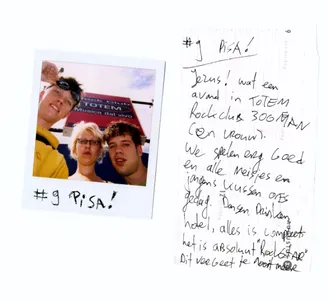 Rock Club
TOTEM
Musica dal vivo
#9 PISA!
#9 PISA!
Jezus! wat een
avond in TOTEM
Rockclub 300 MAN
(en vrouw).
We spelen erg GOED
en alle meisjes en
jongens kussen ons
gedag. Dansen, Drinken,
hotel, alles is compleet
het is absoluut "RockSTAR"
Dit vergeet ik nooit meer